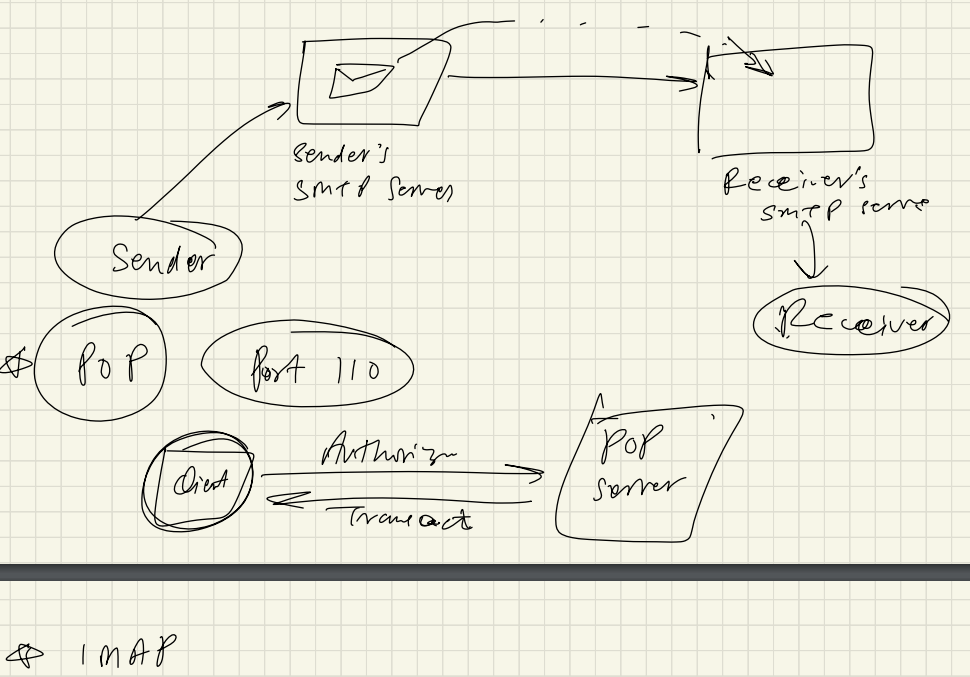 Sender's
SMTP Server
Receiver's
SMTP serve
Sender
Receiver
POP
Port 110
Client
Authorize
Transact
POP
server
IMAP